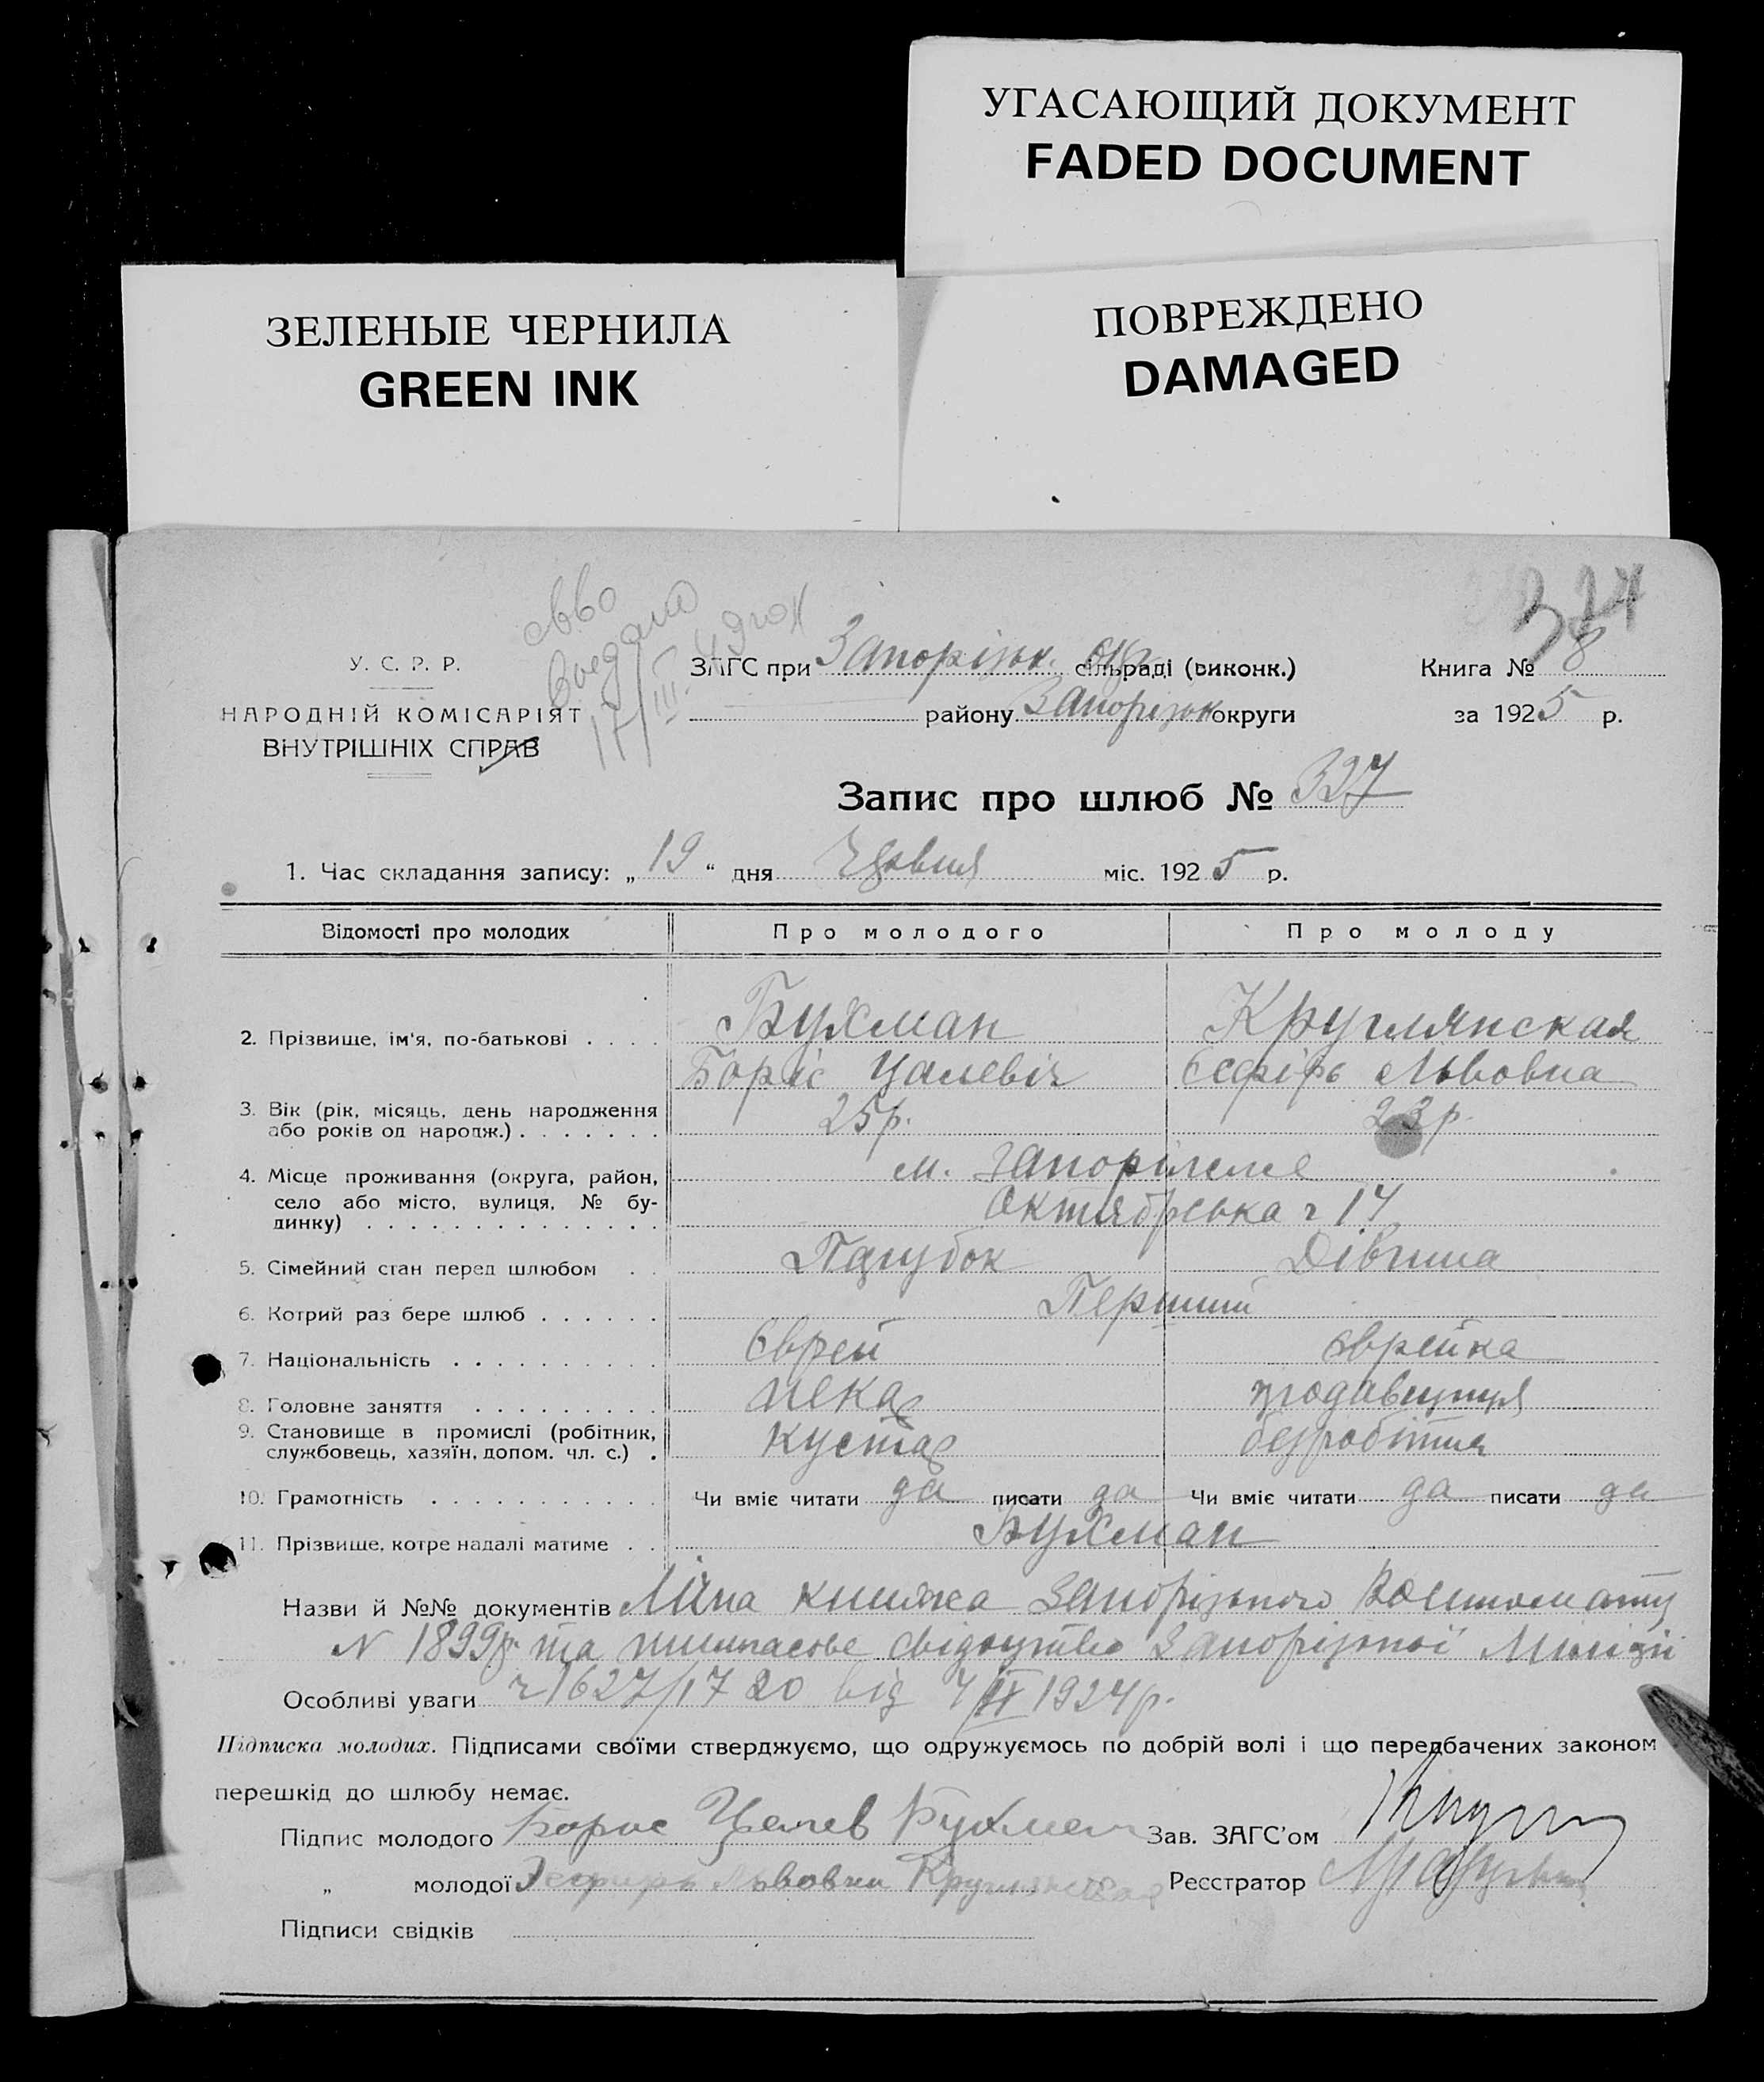 УГАСАЮЩИЙ ДОКУМЕНТ
FADED DOCUMENT
ЗЕЛЕНЫЕ ЧЕРНИЛА
GREEN INK
ПОВРЕЖДЕНО
DAMAGED
327
У. С. Р. Р.
НАРОДНІЙ КОМІСАРІЯТ
ВНУТРІШНІХ СПРАВ
ЗАГС при Запорізьк. окр. сільраді (виконк.) Книга № 8
району Запорізьк округи за 1925 р.
Запис про шлюб № 327
1. Час складання запису: „ 19 “ дня міс. 1925 р.
Відомості про молодих Про молодого Про молоду
2. Прізвище, ім'я, по-батькові . . . . Бухман Круглянская
Боріс Цалевіч Єсфірь Львовна
3. Вік (рік, місяць, день народження
або років од народж.) . . . . . . . 25 р. 23 р.
4. Місце проживання (округа, район,
село або місто, вулиця, № бу-
динку) . . . . . . . . . . . . . . м. Запоріжжя
Октябрська ч 14
5. Сімейний стан перед шлюбом . . Парубок Дівчина
6. Котрий раз бере шлюб . . . . . . Перший
7. Національність . . . . . . . . . . Єврей єврейка
8. Головне заняття . . . . . . . . . пекар продавщиця
9. Становище в промислі (робітник,
службовець, хазяїн, допом. чл. с.) . кустар безробітня
10. Грамотність . . . . . . . . . . . Чи вміє читати да писати да Чи вміє читати да писати да
11. Прізвище, котре надалі матиме . . Бухман
Назви й №№ документів книжка Запорізького
N 1899р. та свідоцтво Запорізької Міліції
Особливі уваги ч 1627/1720 від 1924р.
Підписка молодих. Підписами своїми стверджуємо, що одружуємось по добрій волі і що передбачених законом
перешкід до шлюбу немає.
Підпис молодого Борис Цалев Бухман Зав. ЗАГС'ом
„ молодої Эсфирь Львовна Круглянская Реєстратор
Підписи свідків